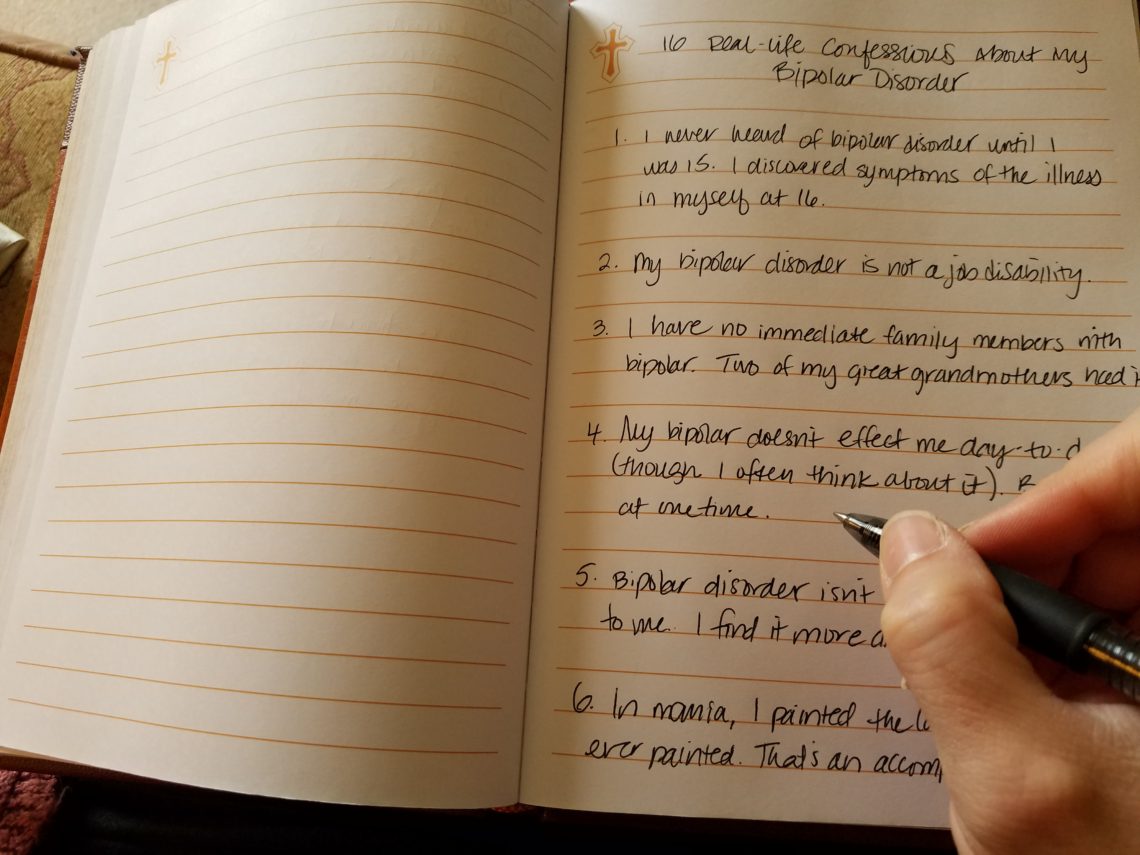 16 Real-life Confessions About My
Bipolar Disorder
1. I never heard of bipolar disorder until I
was 15. I discovered symptoms of the illness
in myself at 16.
2. My bipolar disorder is not a job disability.
3. I have no immediate family members with
bipolar. Two of my great grandmothers had
4. My bipolar doesn't effect me day-to-d
(though I often think about it).
at one time.
5. Bipolar disorder isn't
to me. I find it more
6. In mania, I painted the
ever painted. That's an accom